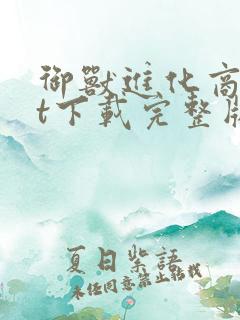 御獸進化商
t下載完整版
夏日柴語
未經同意禁止轉載